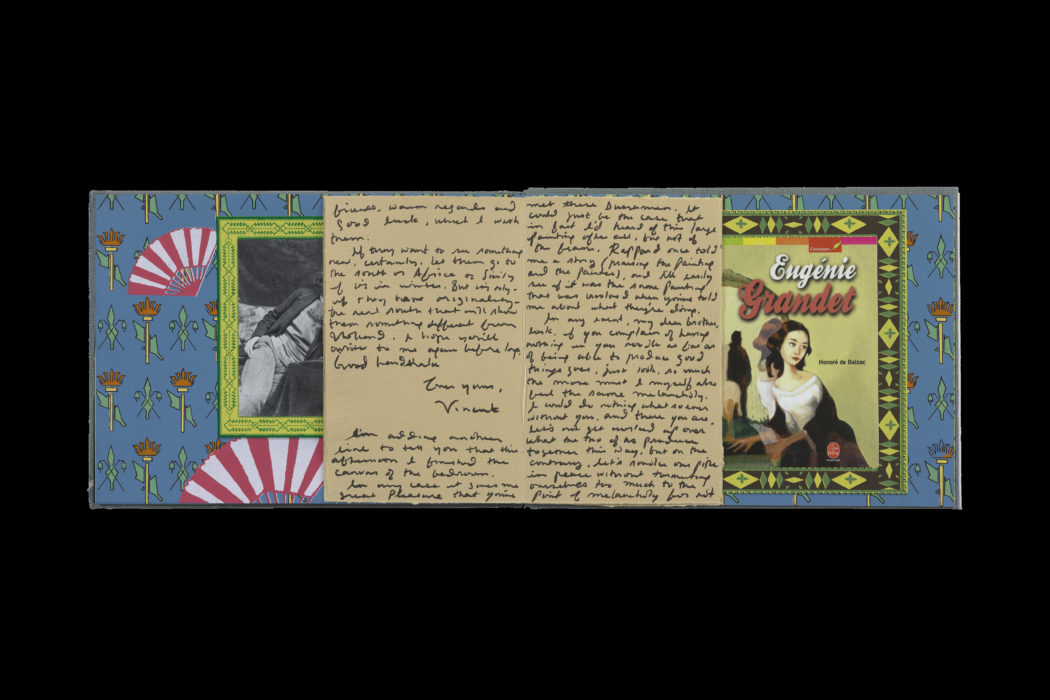 friends, warm regards and
good luck, which I wish
them.
If they want to see something
real, certainly. Let them go to
the south or Africa or Sicily
if it's in winter. But it's only
if they have originality
the real south that will show
them something different from
Holland. I hope you'll
write to me again before long
Good handshake
Ever yours,
Vincent
I'm adding another
line to tell you that this
afternoon I finished the
canvas of the bedroom.
In any case it gives me
great pleasure that you've
met these Dutchmen. It
could just be the case that
in fact I'd heard of this large
painting after all, but not of
the frame. Rappard once told
me a story (praising the painting
and the painter), and I'll easily
see if it was the same painting
that was involved when you've told
me about what they're doing.
In any event, my dear brother,
look, if you complain of having
nothing in your noodle as far as
of being able to produce good
things goes, just look, so much
the more must I myself also
feel the same melancholy.
I could do nothing whatsoever
without you, and there you are.
Let's not get worked up over
what the two of us produce
together this way, but on the
contrary, let's smoke our pipe
in peace without tormenting
ourselves too much to the
point of melancholy for not
Classiques
Eugénie
Grandet
Honoré de Balzac